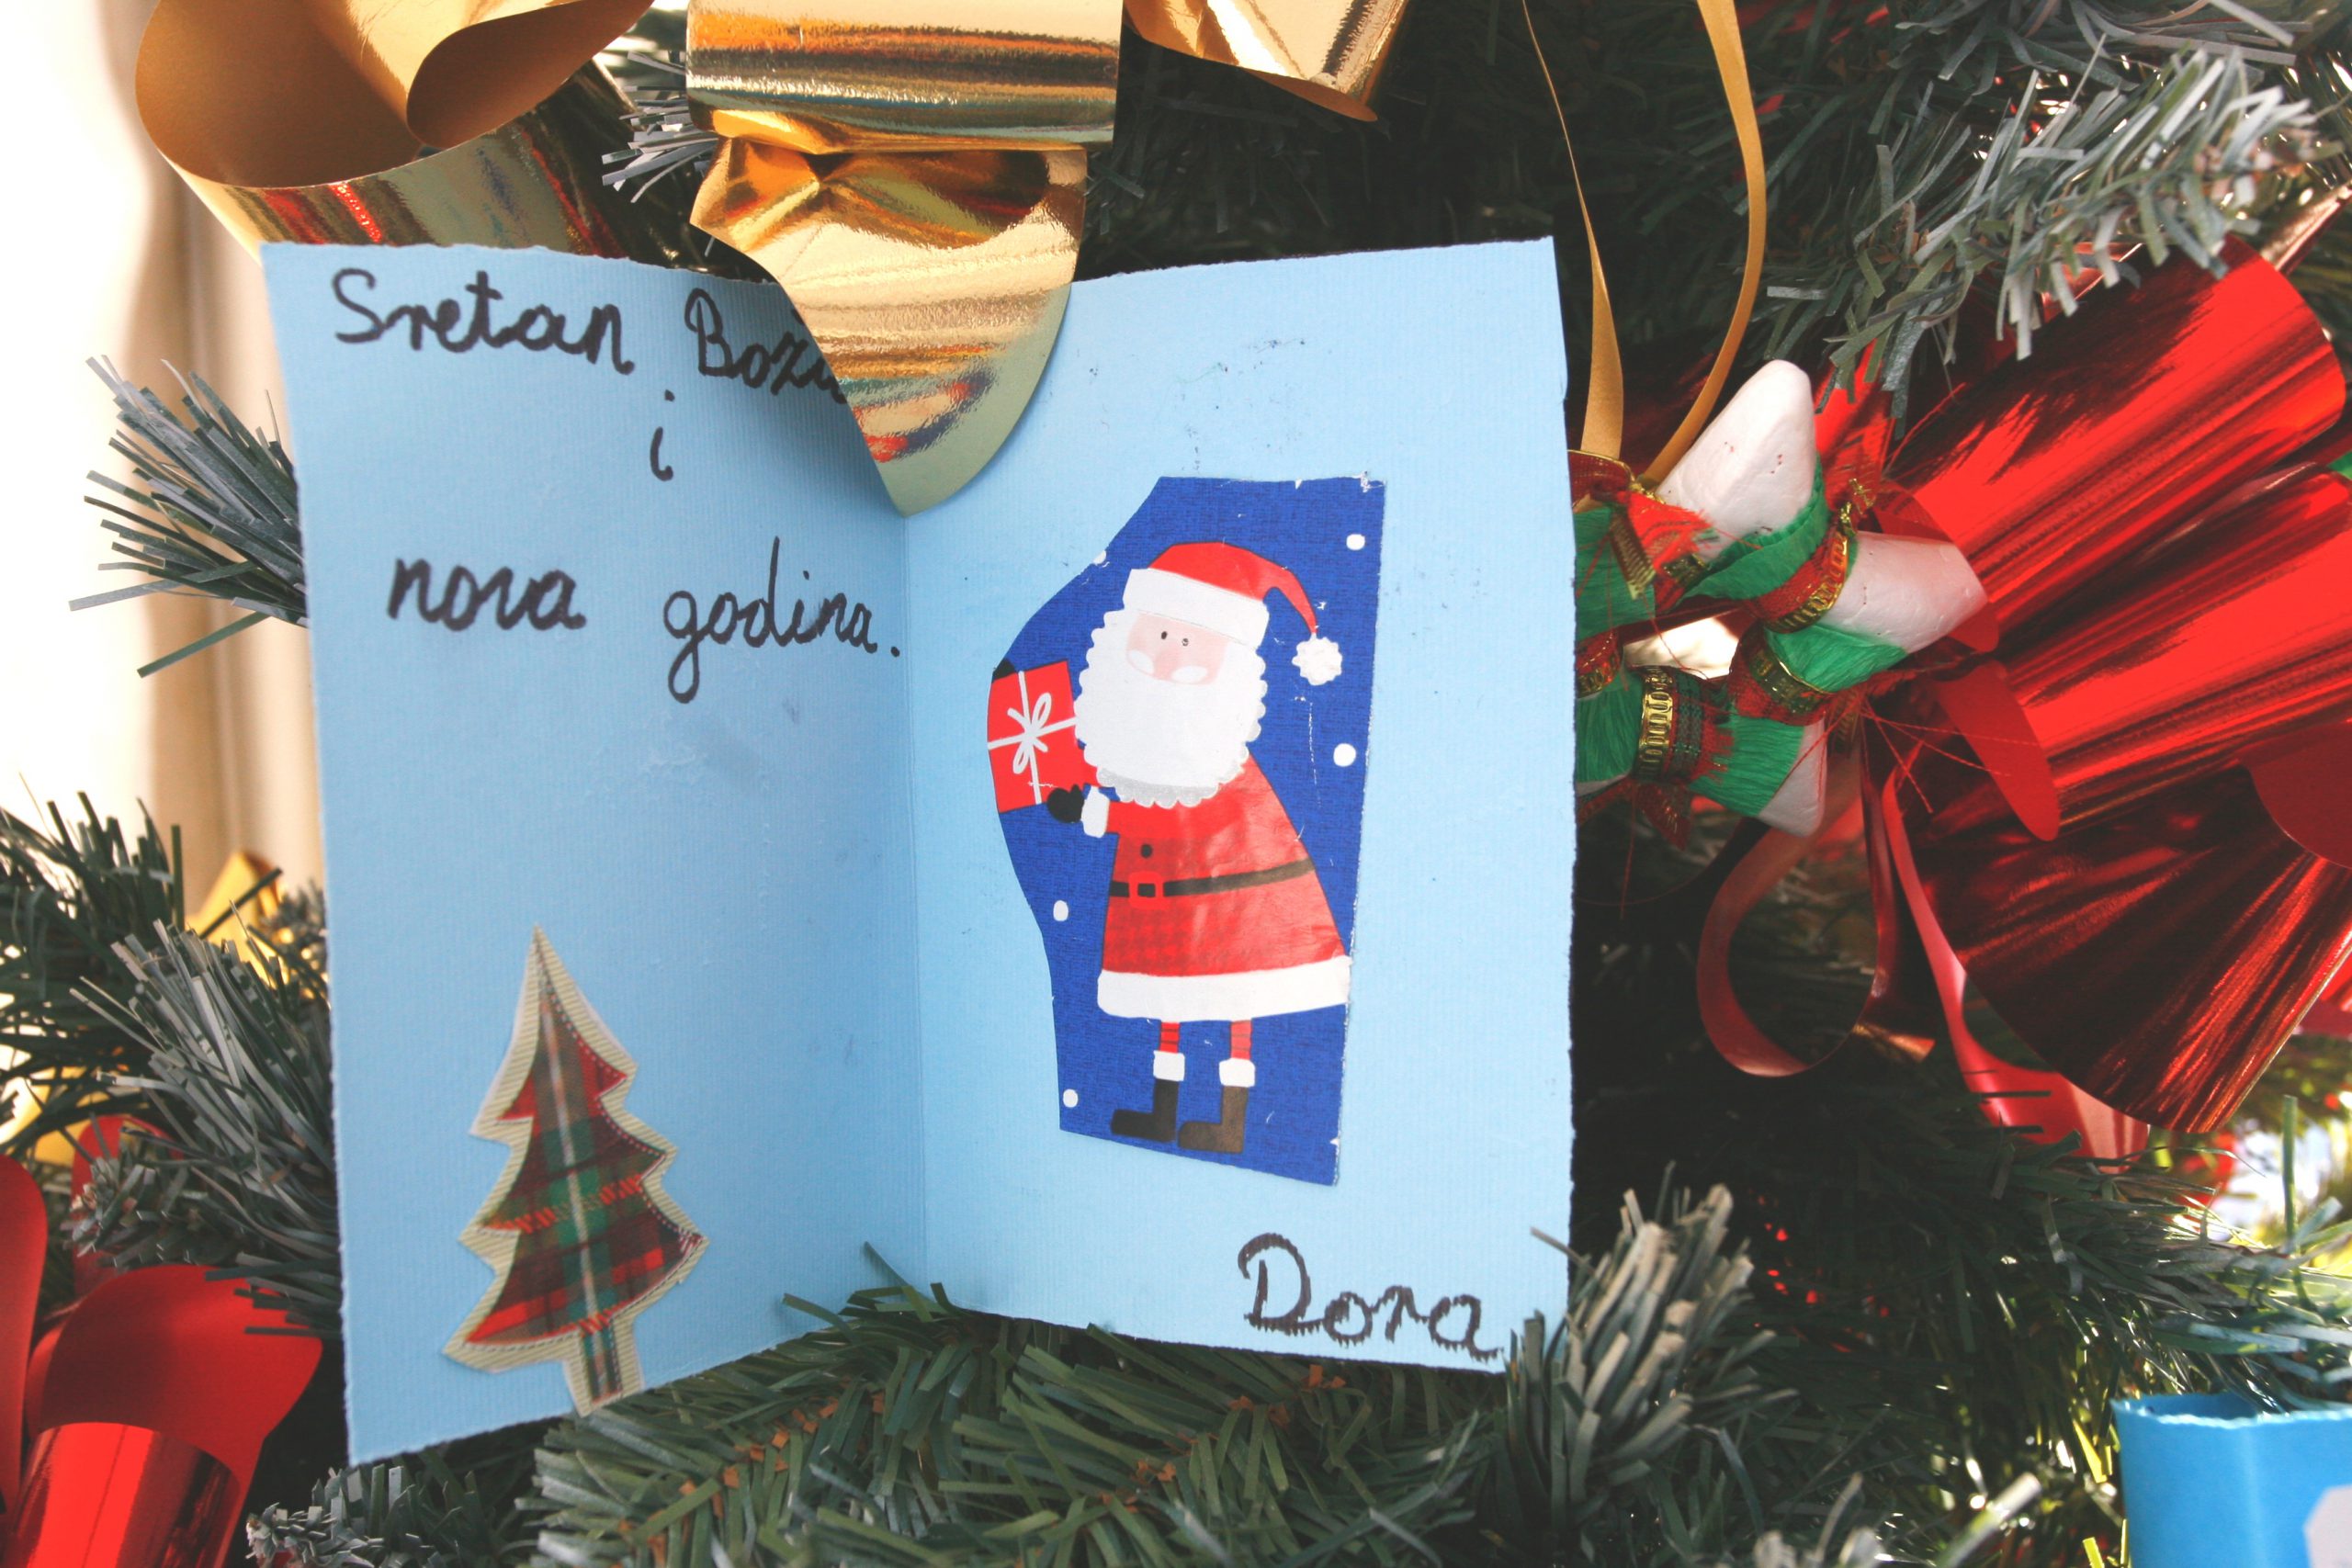 Sretan
i
nova godina.
Dora